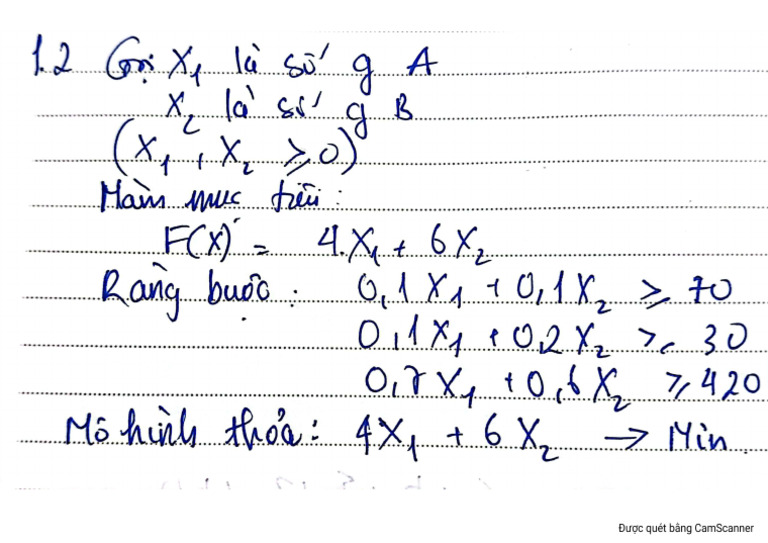 1.2 Gọi X₁ là số g A
X₂ là số g B
(X₁, X₂ ≥ 0)
Hàm mục tiêu:
F(X) = 4.X₁ + 6X₂
Ràng buộc: 0,1X₁ + 0,1X₂ ≥ 70
0,1X₁ + 0,2X₂ ≥ 30
0,7X₁ + 0,6X₂ ≥ 420
Mô hình thỏa: 4X₁ + 6X₂ → Min
Được quét bằng CamScanner